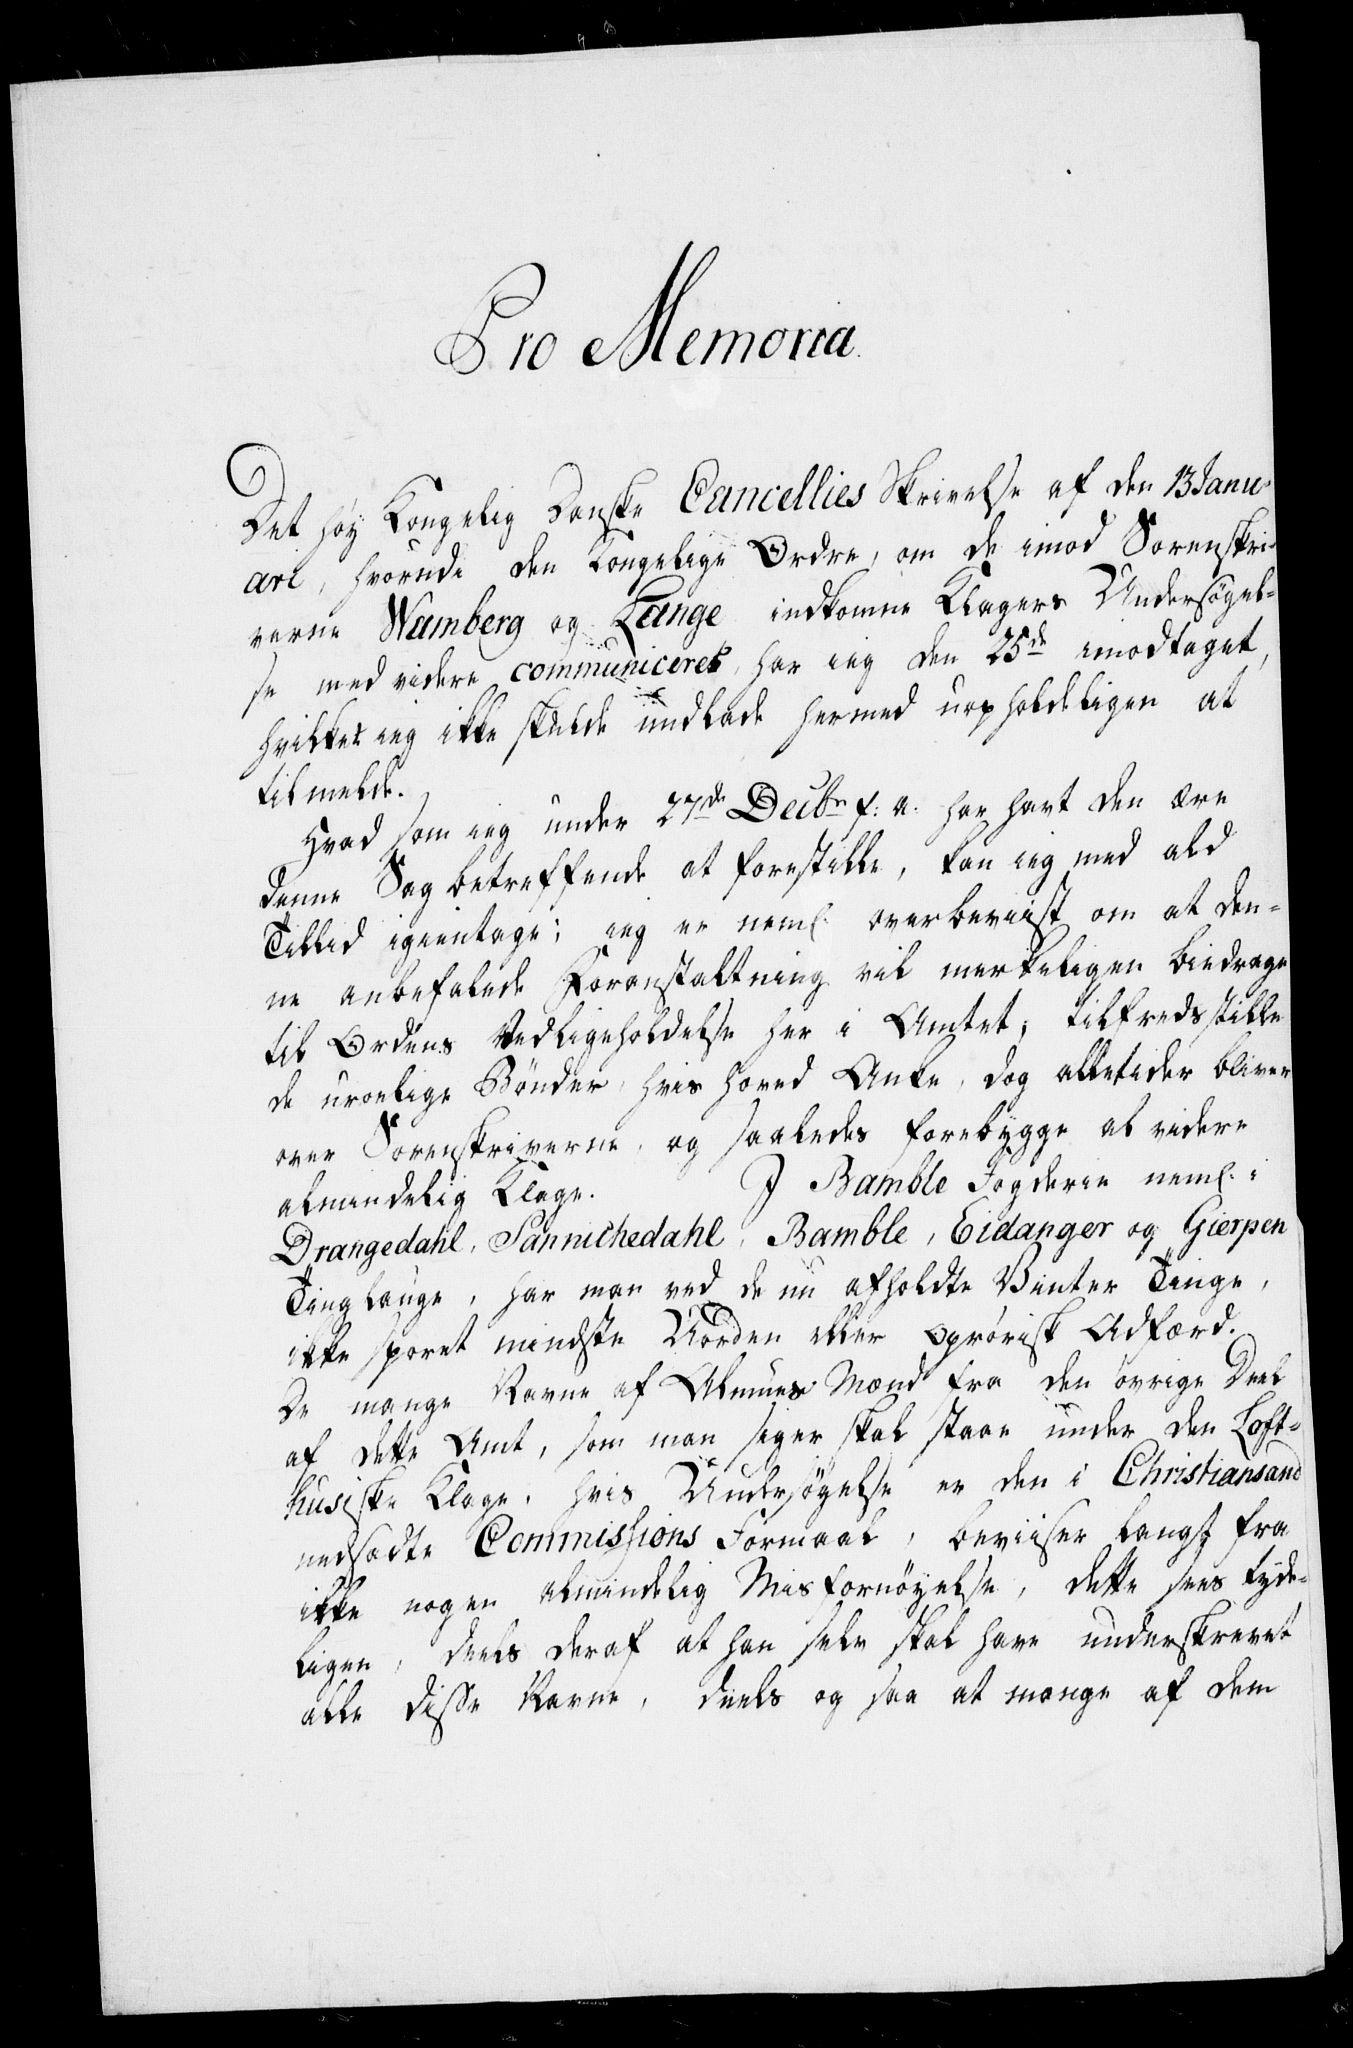 Pro Memoria.
Det høy Kongelig Danske Cancellies Skrivelse af den 13 Janu-
ari, hvorudi den Kongelige Ordre, om de imod Sorenskri-
verne Wamberg og Lange indkomne Klagers Undersøgel-
se med videre communiceret, har ieg den 25de imodtaget,
hvilket ieg ikke skulde undlade hermed uopholdeligen at
tilmelde.
Hvad som ieg under 27de Decbr f: a: har havt den ære
denne Sag betreffende at forestille, kan ieg med ald
Tillid igientage; ieg er neml. overbeviist om at den-
ne anbefalede Foranstaltning vil merkeligen bidrage
til Ordens Vedligeholdelse her i Amtet; tilfredsstille
de uroelige Bønder, hvis hoved Anke, dog alletider bliver
over Sorenskriverne, og saaledes forebygge al videre
almindelig Klage. J Bamble Fogderie neml. i
Drangedahl, Sannichedahl, Bamble, Eidanger og Gierpen
Tinglauge, har man ved de nu afholdte Vinter Tinge,
ikke sporet mindste Uorden eller oprørisk Adfærd.
De mange Navne af Almues Mænd fra den øvrige Deel
af dette Amt, som man siger skal staae under den Loft-
husiske Klage, hvis Undersøgelse er den i Christiansand
nedsadte Commissions Formaal, beviiser langt fra
ikke nogen almindelig Misfornøyelse, dette sees tyde-
ligen, deels deraf at han selv skal have underskrevet
alle disse Navne, deels og saa at mange af dem